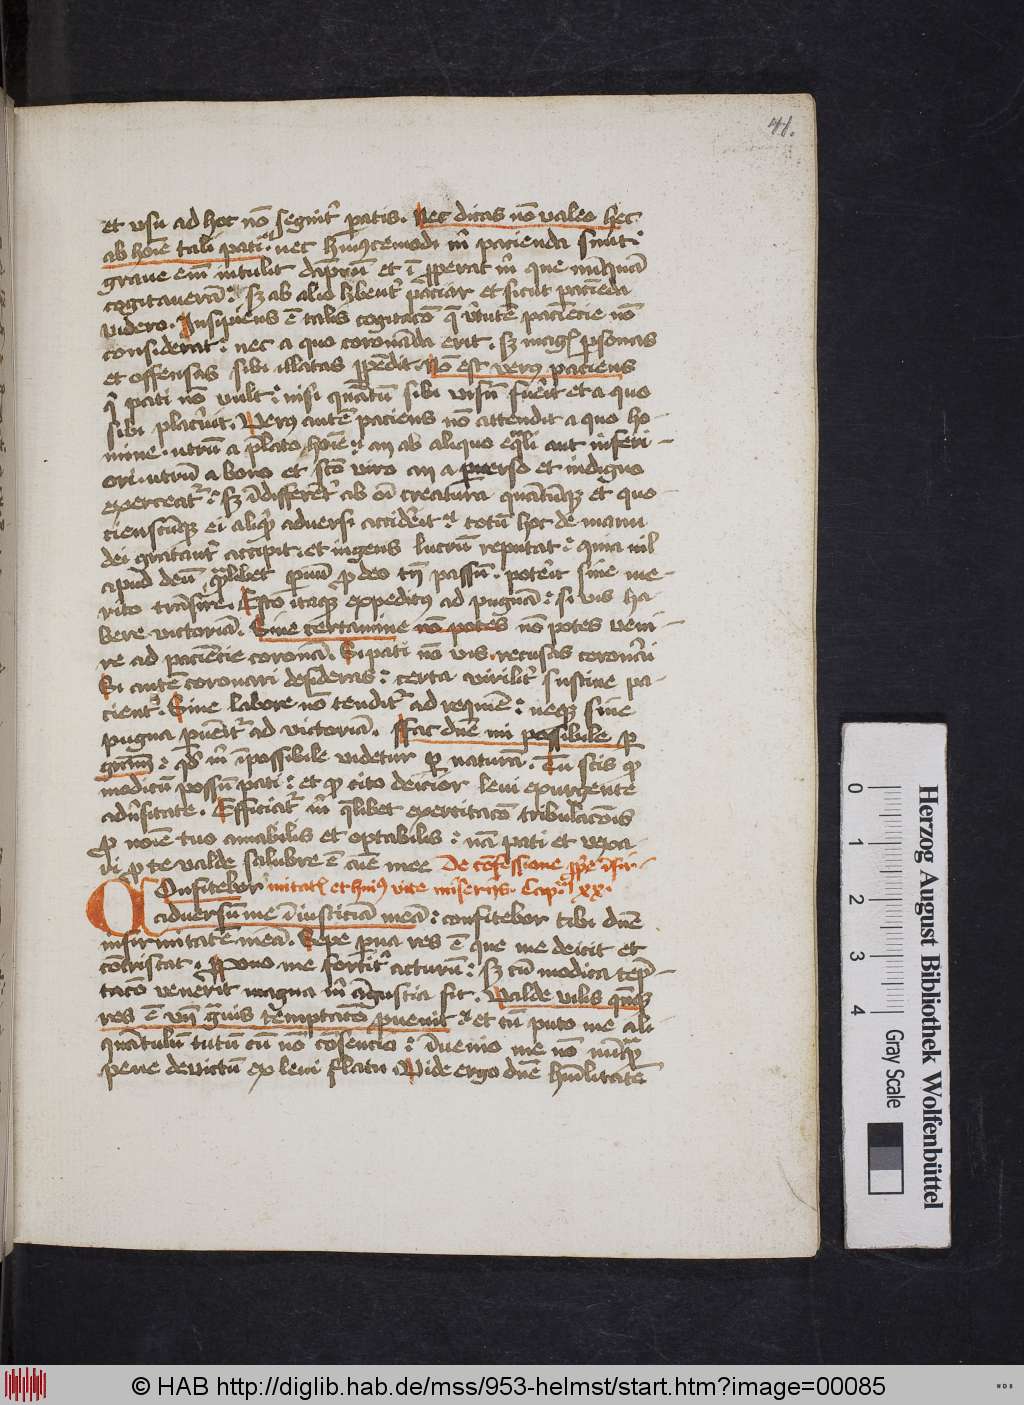 41.
et usu ad hoc nō seginit᷑ patis. Nec dicas nō valeo hec
ab hoīe tali pati. nec hmōꝯcemodi m̄ pacienda sunt.
graue eī intulit dāpnū et īꝓperat m̄ que nūquā
cogitauerā. sꝫ ab alio lūbent᷑ pāciar et sicut paciēda
videro. Insipiens ē talis cogitacō q̄ v̄tutē paciēcie nō
considerat. nec a quo coronāda erit. sꝫ magꝭ ꝑsonas
et offensas sibi illatas ꝑpēdit. Nō est verꝰ paciens
q̄ pati nō vult. nisi quātū sibi visū fuerit et a quo
sibi placuīt. Verꝰ autē paciens nō attendit a quo ho-
mine. utrū a p̄lato hoīe. an ab aliquo eq̄li aut inferi-
ori. utrū a bono et scō viro an a puerso et indigno
exerceat᷑. sꝫ īdifferēt᷑ ab oī creatura quātūcūqꝫ et quo-
cienscūqꝫ ei aliqͥd aduersi accid'it totū hoc de manu
dei gratant᷑ accipit. et ingens lucrū reputat. quia nil
apud deū qͣlibet ꝑuū ꝓ deo tn̄ passū. pot'it sine me-
rito trāsire. Esto itaqꝫ expeditꝰ ad pugnā. si vis ha-
bere victoriā. Sine certamine nō potes nō potes veni-
re ad paciēcie coronā. Si pati nō vis. recusas coronari
Si autē coronari desideras. certa virilit᷑ sustine pa-
cient᷑. Sine labore nō tendit᷑ ad requiē. neqꝫ sine
pugna puēit᷑ ad victoriā. ffac dn̄e mi possibile ꝑ
gr̄am. qd̄ m̄ īpossibile videtur ꝑ naturā. Tu scis qꝫ
modicū possū pati. et qꝫ cito deicior leui exurgente
adūsitate. Efficiat᷑ m̄ q̄libet exercitacō tribulacōis
ꝓ noīe tuo amabilis et optabilis. nā pati et vexa-
ri ꝓ te valde salubre ē aīe mee De cōfessione ꝓpͥe īfir-
COnfitebor mitatꝭ et huiꝰ vite miserijs. Cap. xx.
aduersum me īiusticiā meā. confitebor tibi dn̄e
infirmitatē meā. Sepe ꝑua res ē que me deicit et
cōtristat. Ꝓpono me fortit᷑ acturū. sꝫ cū modica tēp-
tacō venerit magna m̄ āgustia fit. Valde vilis qn̄qꝫ
res ē vn̄ gͣuis temptacō ꝓuenit. et cū puto me ali-
quātulū tutū cū nō cōsencio. īuenio me nō nūqͣ
pene deuictū ex leui flatu. Vide ergo dn̄e hūilitatē
Herzog August Bibliothek Wolfenbüttel
0 1 2 3 4
Gray Scale
© HAB http://diglib.hab.de/mss/953-helmst/start.htm?image=00085